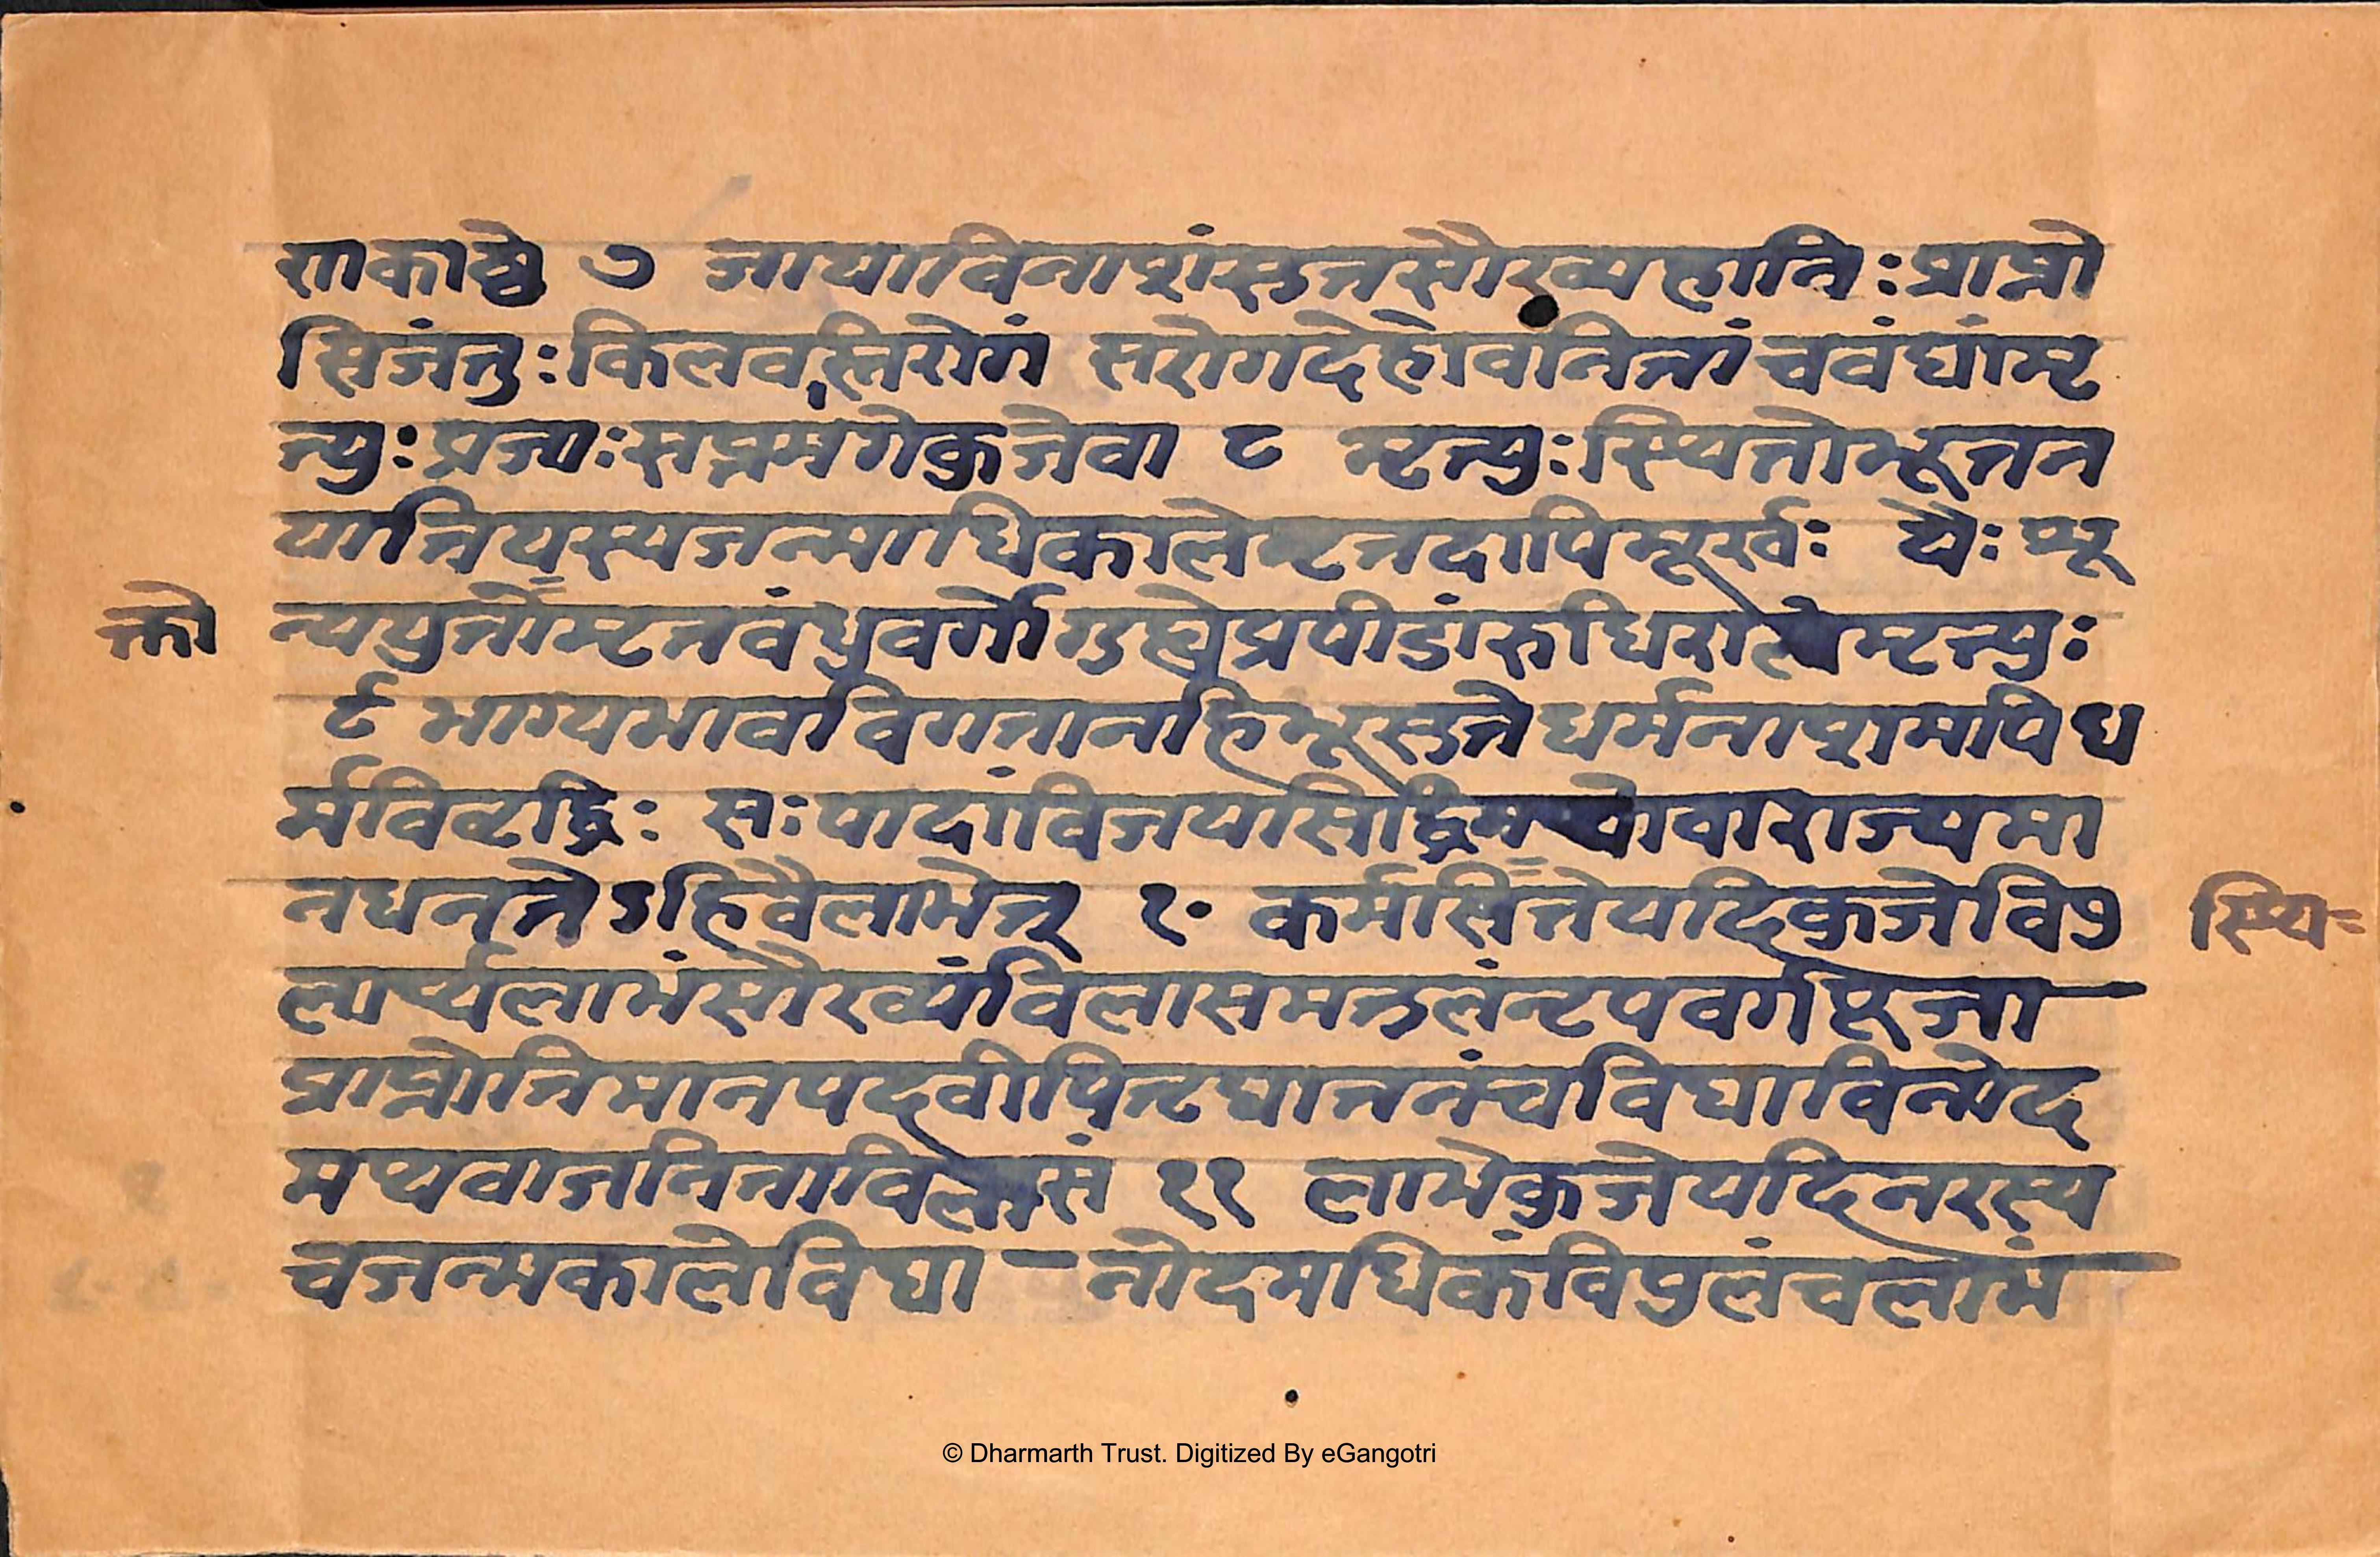 राकाष्ठे ७ जायाविनाशंसुतसौख्यहानिः प्राप्नो
तिजंतुः किलवस्तिरोगं सरोगदेहोवनितां चवंध्यांमृ
त्युः प्रजाः सप्तमगेकुजेवा ८ मृत्युः स्थितोभूतन
यातियस्यजन्माधिकालेमृतदापिमूर्खः द्यैः शू
न्ययुतोमृतवंधुवर्गो गुह्येप्रपीडांरुधिरा मृत्युः
क्तो
९ भाग्यभावविगतानहिभूसुतेधर्मनाशमपिध
र्मविवृद्धिः सः पादांविजयसिद्धिम वाराज्यमा
नधनतेऽहिवैलाभेत् १० कर्मासितेयदिकुजेवि
स्थि
लार्थलाभंसौख्यंविलासमतुलंनृपवर्गपूजा
प्राप्नोतिमानपदवीपितृघाततंचविद्याविनोद
मथवाजनिताविलासं ११ लाभेकुजेयदिनरस्य
चजन्मकालेविद्या नोदमधिकंविपुलंचलाभं
© Dharmarth Trust. Digitized By eGangotri